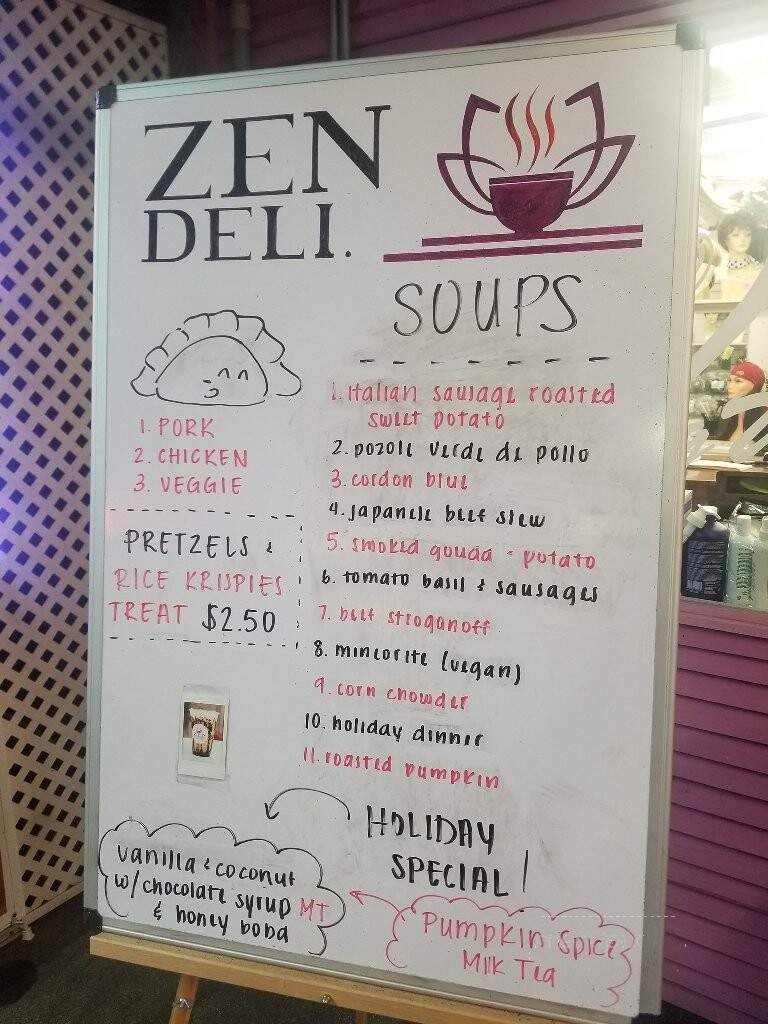 ZEN
DELI.
SOUPS
1. PORK
2. CHICKEN
3. VEGGIE
PRETZELS &
RICE KRISPIES
TREAT $2.50
1. italian sausage roasted
sweet potato
2. pozole verde de pollo
3. cordon blue
4. japanese beef stew
5. smoked gouda - potato
6. tomato basil & sausages
7. beef stroganoff
8. mineorite (vegan)
9. corn chowder
10. holiday dinner
11. roasted pumpkin
HOLIDAY
SPECIAL!
vanilla & coconut
w/chocolate syrup MT
& honey boba
Pumpkin Spice
Milk Tea